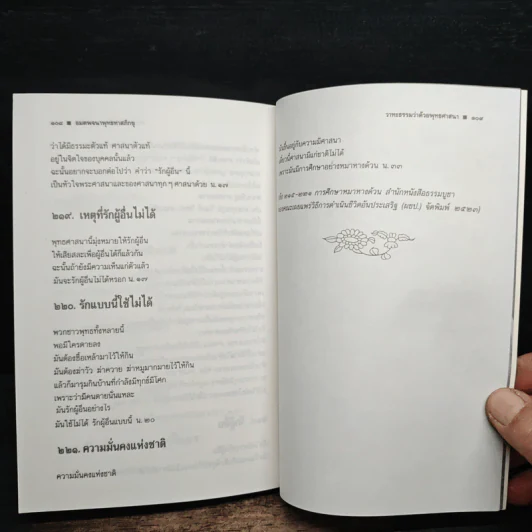 ๑๐๘ ■ อมตพจนาพุทธทาสภิกขุ
ว่าได้มีธรรมะตัวแท้ ศาสนาตัวแท้
อยู่ในจิตใจของบุคคลนั้นแล้ว
ฉะนั้นอยากจะบอกต่อไปว่า คำว่า "รักผู้อื่น" นี้
เป็นหัวใจพระศาสนาและของศาสนาทุก ๆ ศาสนาด้วย น.๑๗
๒๑๙. เหตุที่รักผู้อื่นไม่ได้
พุทธศาสนานี้มุ่งหมายให้รักผู้อื่น
ให้เสียสละเพื่อผู้อื่นได้ก็แล้วกัน
ฉะนั้นถ้ายังมีความเห็นแก่ตัวแล้ว
มันจะรักผู้อื่นไม่ได้หรอก น.๑๗
๒๒๐. รักแบบนี้ใช้ไม่ได้
พวกชาวพุทธทั้งหลายนี้
พอมีใครตายลง
มันต้องซื้อเหล้ามาไว้ให้กิน
มันต้องฆ่าวัว ฆ่าควาย ฆ่าหมูมากมายไว้ให้กิน
แล้วก็มารุมกินบ้านที่กำลังมีทุกข์มีโศก
เพราะว่ามีคนตายนั่นแหละ
มันรักผู้อื่นอย่างไร
มันใช้ไม่ได้ รักผู้อื่นแบบนี้ น.๒๐
๒๒๑. ความมั่นคงแห่งชาติ
ความมั่นคงแห่งชาติ
วาทะธรรมว่าด้วยพุทธศาสนา ■ ๑๐๙
ขึ้นอยู่กับความมีศาสนา
ศาสนามีแก่ชาติไม่ได้
มันมีการศึกษาอย่างหมาหางด้วน น.๓๓
๑๑๕-๒๒๑ การศึกษาหมาหางด้วน สำนักหนังสือธรรมบูชา
คณะเผยแพร่วิธีการดำเนินชีวิตอันประเสริฐ (ผชป.) จัดพิมพ์ ๒๕๒๓)